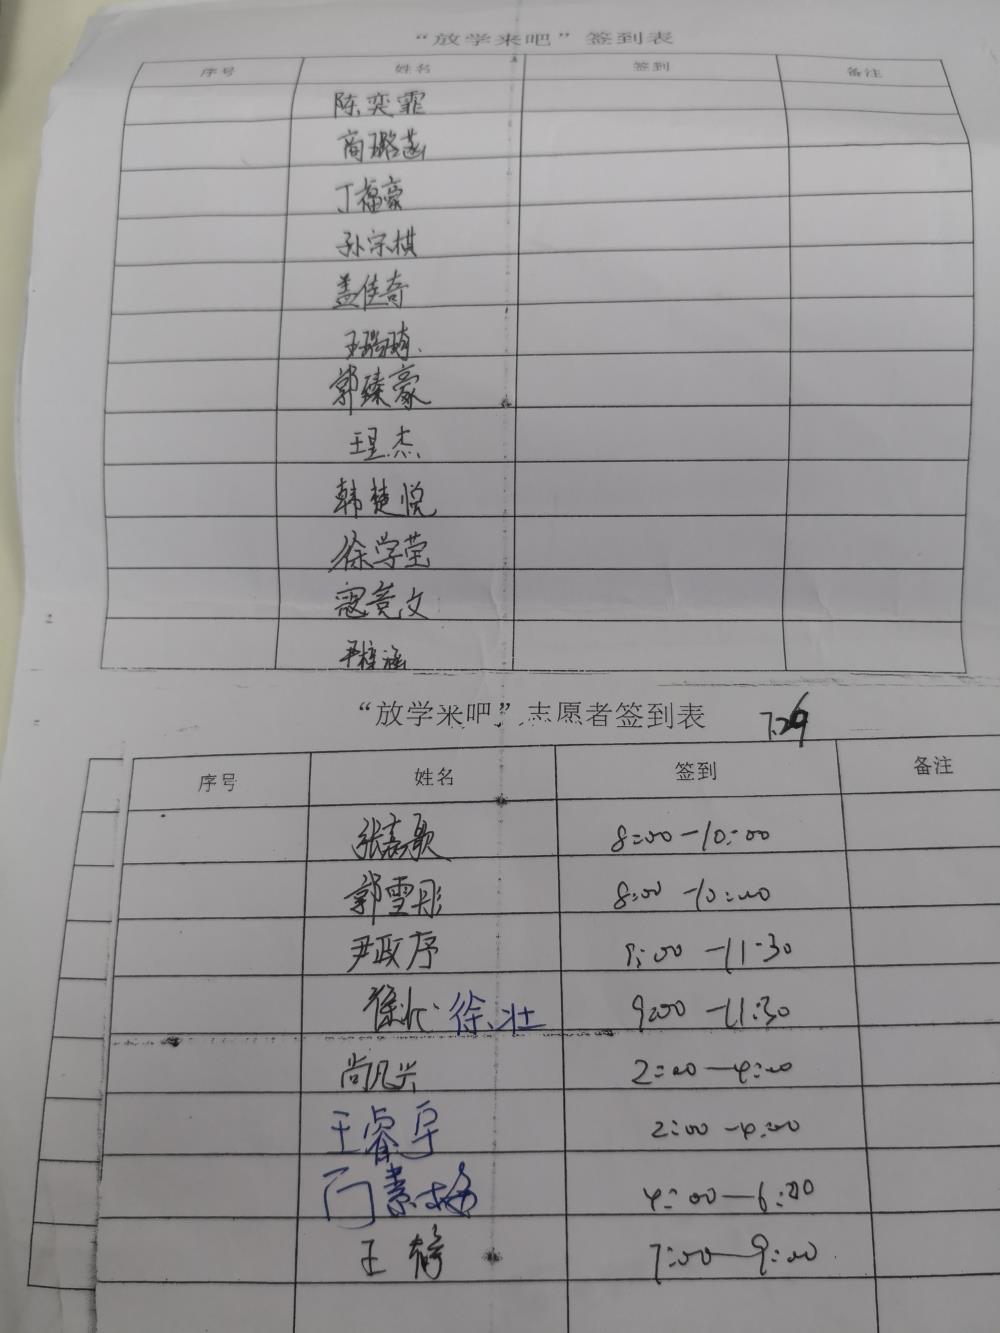 “放学来吧”签到表
序号 姓名 签到 备注
陈奕霏
商璐菡
丁福豪
孙宗棋
盖佳奇
郭臻豪
王星杰
韩楚悦
徐学莹
寇竟文
尹梓涵
“放学来吧”志愿者签到表 7.29
序号 姓名 签到 备注
张嘉歌 8:00-10:00
郭雪彤 8:00-10:00
尹政序 9:00-11:30
徐壮 徐壮 9:00-11:30
尚凡兴 2:00-4:00
王睿宇 2:00-4:00
门素梅 4:00-6:00
王 7:00-9:00